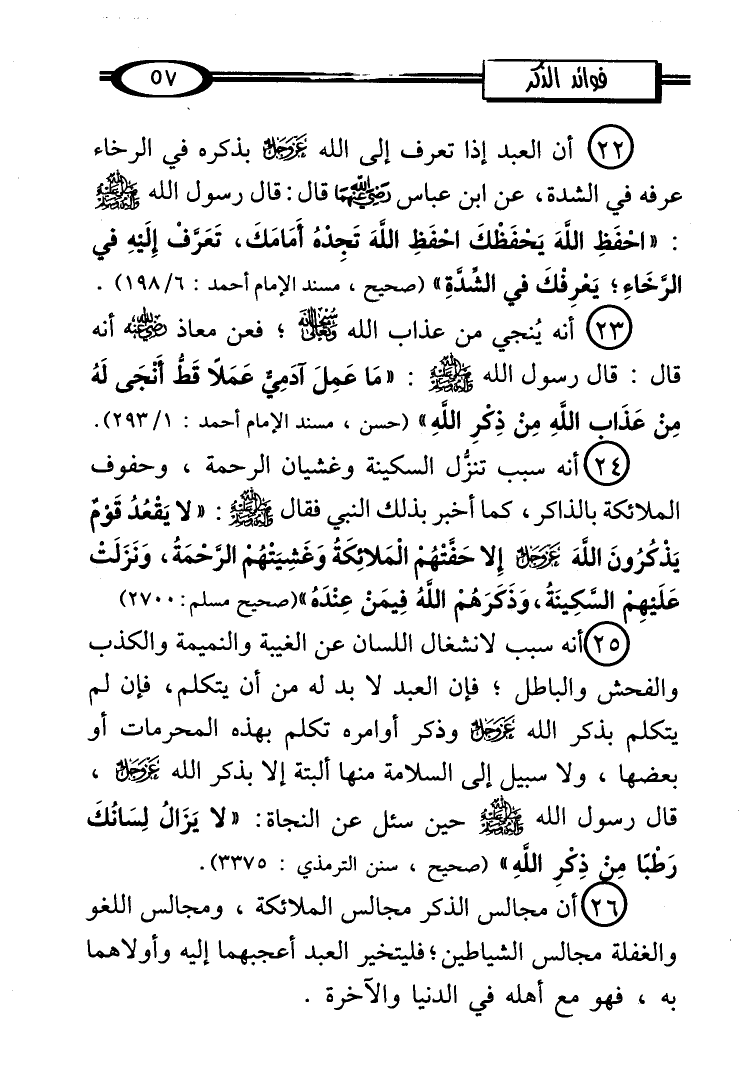 فوائد الذكر
٥٧
٢٢ أن العبد إذا تعرف إلى الله عَزَّوَجَلَّ بذكره في الرخاء
عرفه في الشدة، عن ابن عباس رَضِيَ اللَّهُ عَنْهُمَا قال: قال رسول الله ﷺ
: «احْفَظِ اللَّهَ يَحْفَظْكَ احْفَظِ اللَّهَ تَجِدْهُ أَمَامَكَ، تَعَرَّفْ إِلَيْهِ في
الرَّخَاءِ؛ يَعْرِفْكَ في الشِّدَّةِ» (صحيح ، مسند الإمام أحمد : ١٩٨/٦) .
٢٣ أنه يُنجي من عذاب الله سُبْحَانَهُ وَتَعَالَى ؛ فعن معاذ رَضِيَ اللَّهُ عَنْهُ أنه
قال : قال رسول الله ﷺ : «مَا عَمِلَ آدَمِيٌّ عَمَلًا قَطُّ أَنْجَى لَهُ
مِنْ عَذَابِ اللَّهِ مِنْ ذِكْرِ اللَّهِ» (حسن ، مسند الإمام أحمد : ٢٩٣/١).
٢٤ أنه سبب تنزُّل السكينة وغشيان الرحمة ، وحفوف
الملائكة بالذاكر ، كما أخبر بذلك النبي فقال ﷺ : «لا يَقْعُدُ قَوْمٌ
يَذْكُرُونَ اللَّهَ عَزَّوَجَلَّ إِلا حَفَّتْهُمْ الْمَلائِكَةُ وَغَشِيَتْهُمْ الرَّحْمَةُ، وَنَزَلَتْ
عَلَيْهِمْ السَّكِينَةُ، وَذَكَرَهُمْ اللَّهُ فِيمَنْ عِنْدَهُ»(صحيح مسلم: ٢٧٠٠)
٢٥ أنه سبب لانشغال اللسان عن الغيبة والنميمة والكذب
والفحش والباطل ؛ فإن العبد لا بد له من أن يتكلم، فإن لم
يتكلم بذكر الله عَزَّوَجَلَّ وذكر أوامره تكلم بهذه المحرمات أو
بعضها ، ولا سبيل إلى السلامة منها ألبتة إلا بذكر الله عَزَّوَجَلَّ ،
قال رسول الله ﷺ حين سئل عن النجاة: «لا يَزَالُ لِسَانُكَ
رَطْبًا مِنْ ذِكْرِ اللَّهِ» (صحيح ، سنن الترمذي : ٣٣٧٥).
٢٦ أن مجالس الذكر مجالس الملائكة ، ومجالس اللغو
والغفلة مجالس الشياطين؛ فليتخير العبد أعجبهما إليه وأولاهما
به ، فهو مع أهله في الدنيا والآخرة .